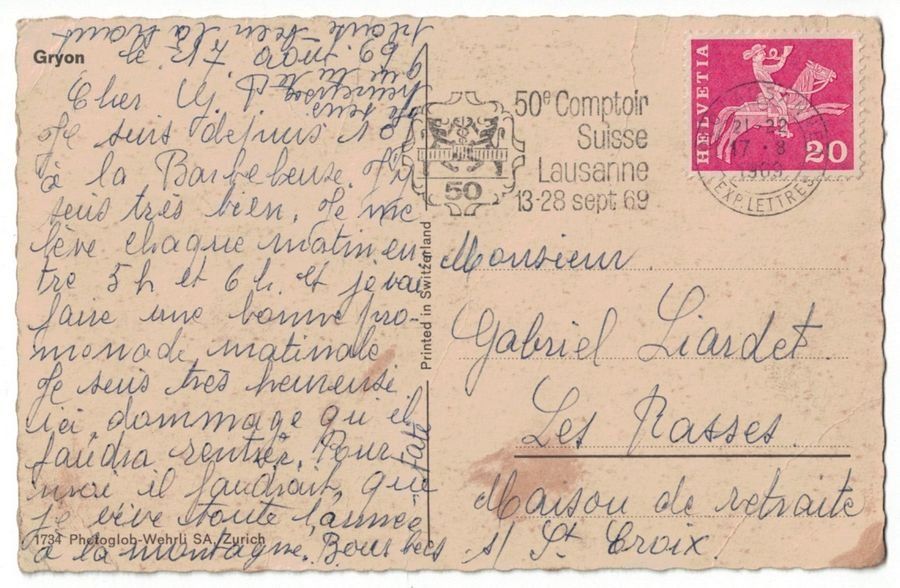 Gryon
le 17 août 69
Cher M. 
Je suis depuis
à la Barboleuse. J'y
suis très bien. Je me
lève chaque matin en
tre 5 h et 6 h. et je vais
faire une bonne pro-
menade matinale
Je suis très heureuse
ici dommage qu'il
faudra rentrer. Pour
moi il faudrait que
je vive toute l'année
à la montagne. Bons becs
1734 Photoglob-Wehrli SA, Zurich
Printed in Switzerland
50e Comptoir
Suisse
Lausanne
13-28 sept 69
50
HELVETIA
20
21-22
17·8
1969
EXP. LETTRES
Monsieur
Gabriel Liardet
Les Rasses
Maison de retraite
s/ St Croix